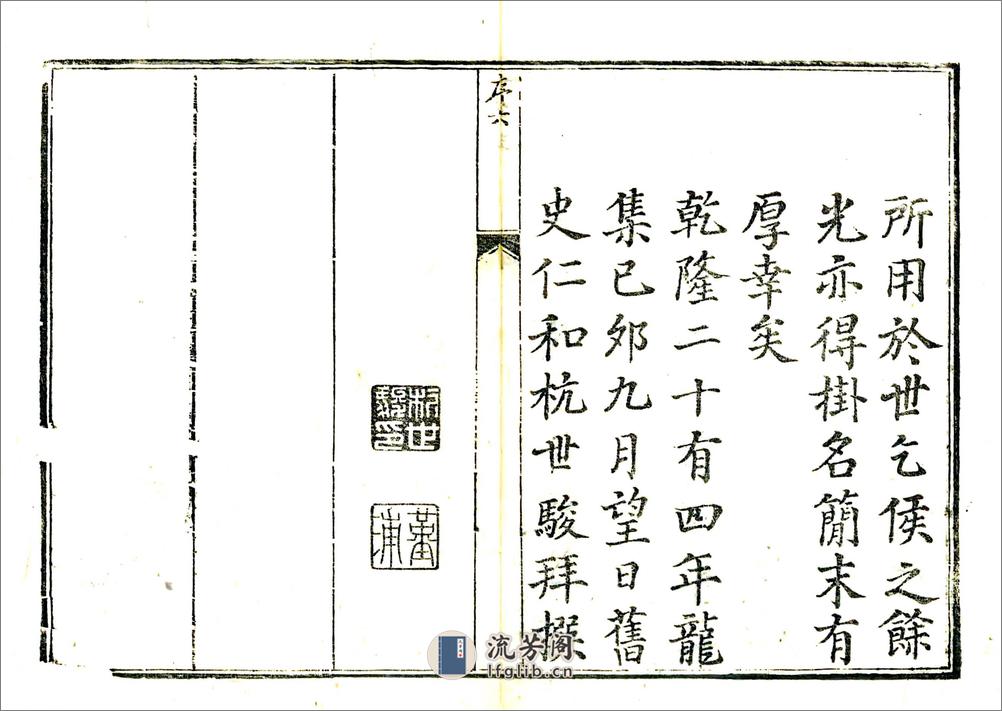 所用於世乞侯之餘
光亦得掛名簡末有
厚幸矣
乾隆二十有四年龍
集已夘九月望日舊
史仁和杭世駿拜撰
序六
杭世駿印
菫浦
流芳阁
lfglib.cn